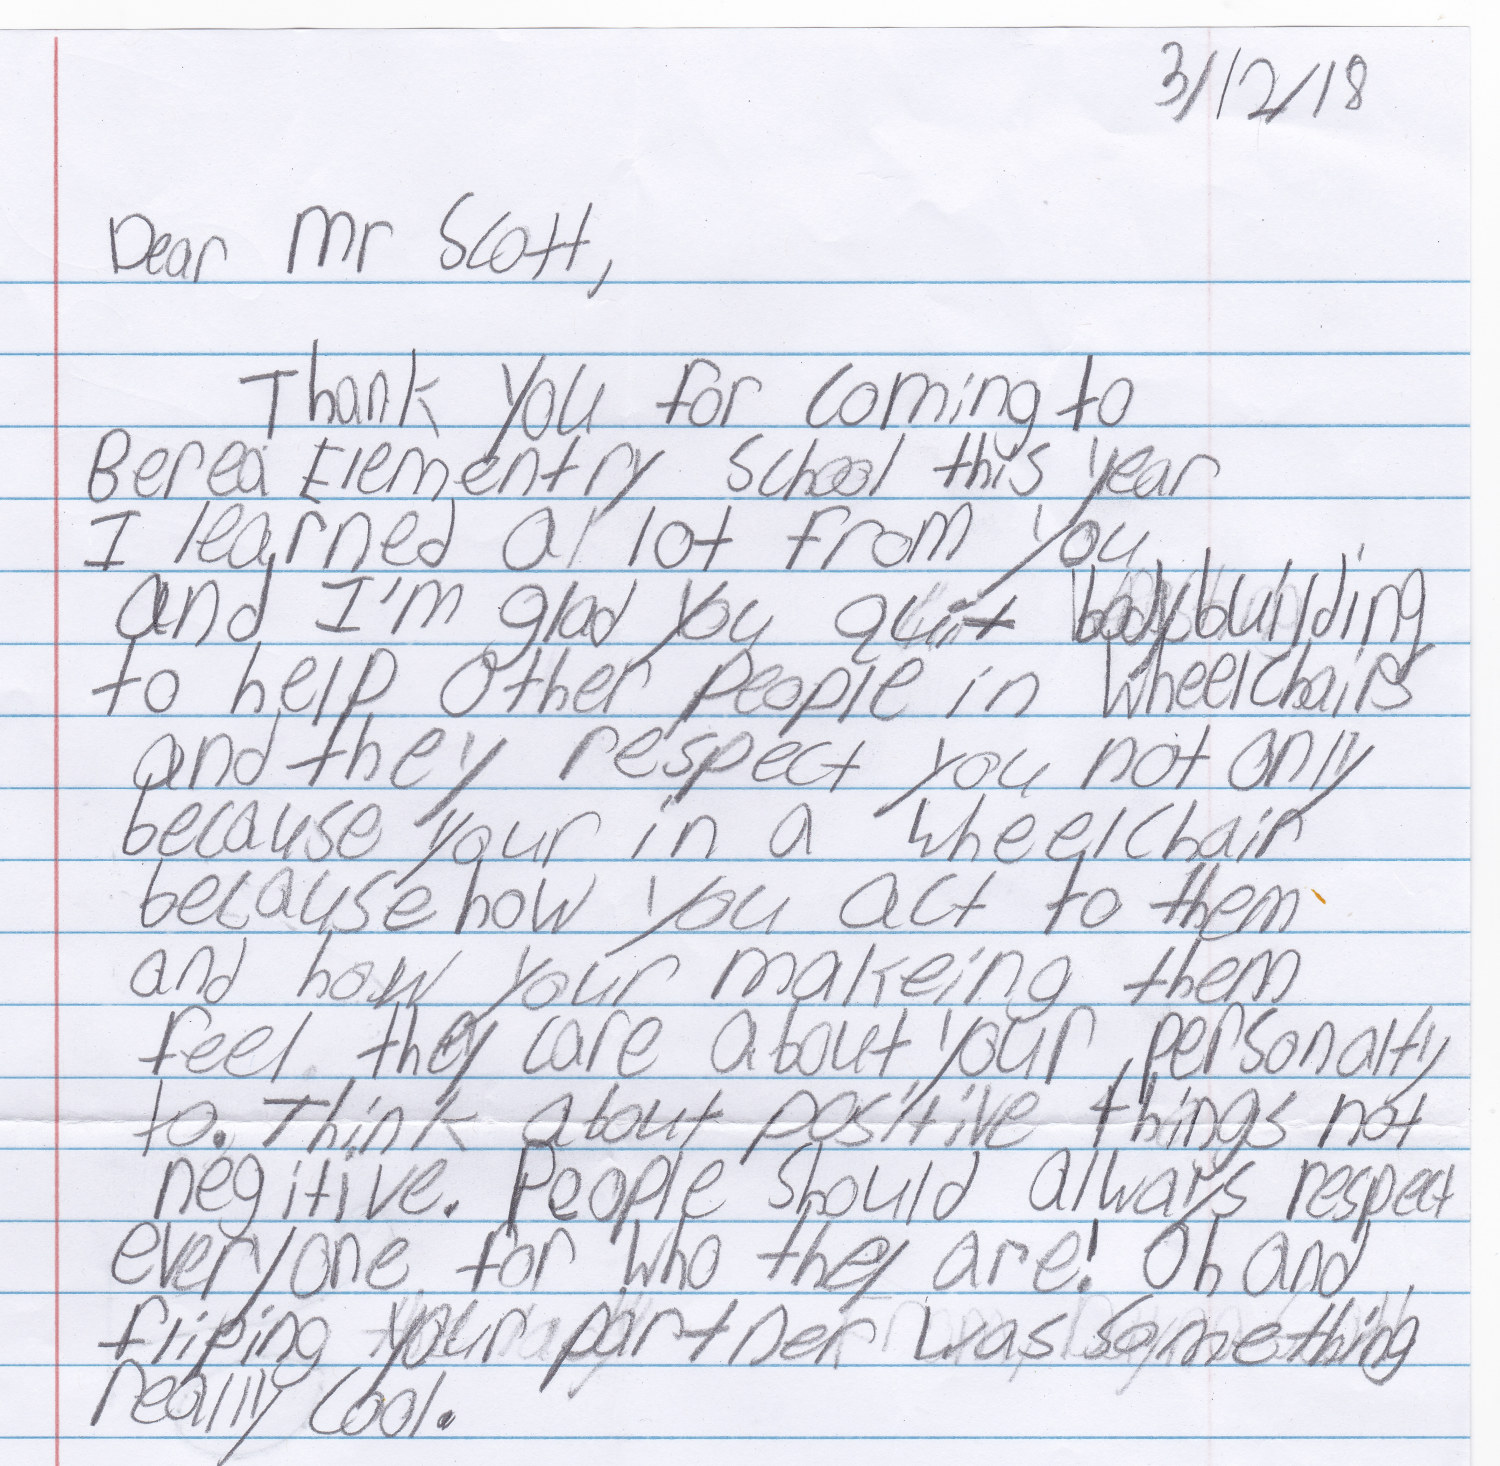 3/12/18
Dear Mr Scott,
Thank you for coming to
Berea Elementry School this year
I learned a lot from you
and I'm glad you quit bodybuilding
to help other people in wheelchairs
and they respect you not only
because your in a wheelchair
because how you act to them
and how your makeing them
feel they care about your personalty
to. Think about positive things not
negitive. People should always respect
everyone for who they are! Oh and
fliping your partner was something
really cool.